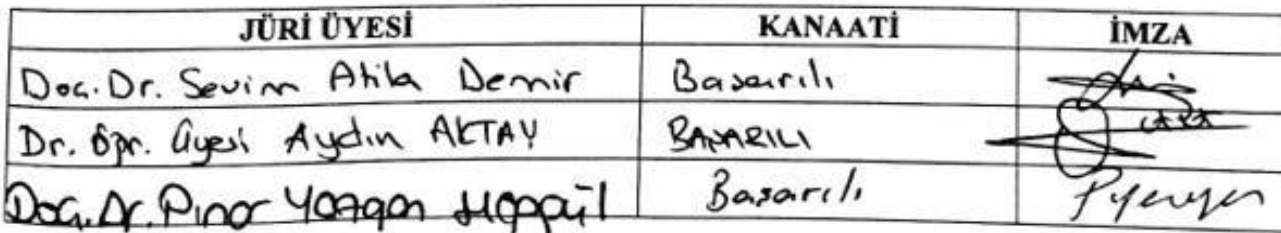 JÜRİ ÜYESİ KANAATİ İMZA
Doç. Dr. Sevim Atila Demir Başarılı
Dr. Öğr. Üyesi Aydın AKTAY BAŞARILI
Doç. Dr. Pınar Yazgan Başarılı